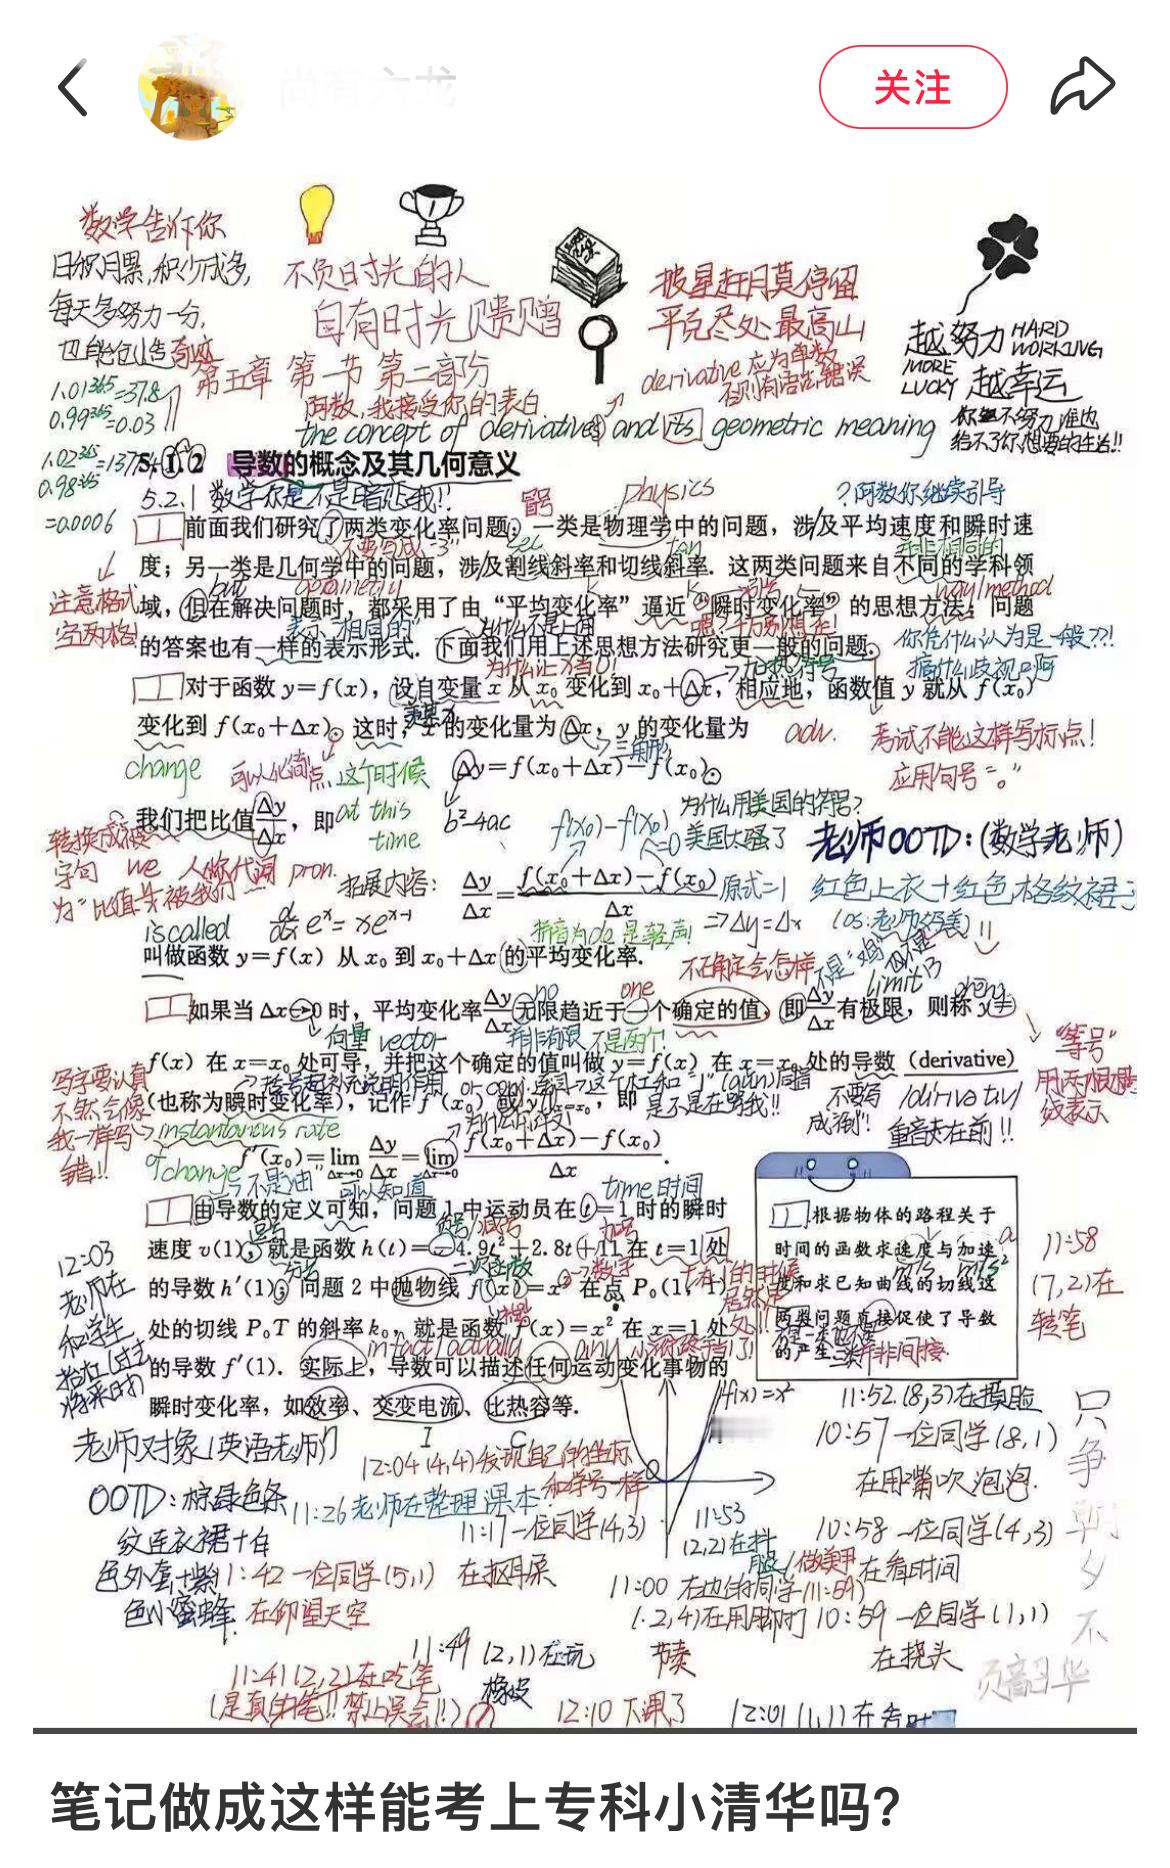 关注
数学告诉你
日积月累,积少成多,
每天多努力一分,
也能创造奇迹
1.01^365=37.8
0.99^365=0.03
0.98^365
=0.0006
不负时光的人
自有时光赐赠
披星赶月莫停留
平芜尽处最高山
越努力 HARD WORKING
MORE LUCKY 越幸运
你不努力谁也
给不了你想要的生活!!
第五章 第一节 第二部分
阿数,我接受你的表白
derivative 应为单数
否则有语法错误
the concept of derivative(s) and its geometric meaning
5.1.2 导数的概念及其几何意义
5.2.1 数学你是不是暗恋我!!
冒号
physics
?阿数你继续引导
前面我们研究了两类变化率问题:一类是物理学中的问题,涉及平均速度和瞬时速
不要写成“3”
sec
tan
并非相同的
度;另一类是几何学中的问题,涉及割线斜率和切线斜率.这两类问题来自不同的学科领
but
way/method
注意格式
空两格!
域,但在解决问题时,都采用了由“平均变化率”逼近“瞬时变化率”的思想方法;问题
表示“相同的”
为什么不是上面
你凭什么认为是一般??!
搞什么歧视啊
的答案也有一样的表示形式.下面我们用上述思想方法研究更一般的问题.
为什么让x当0!
对于函数 y=f(x),设自变量 x 从 x₀ 变化到 x₀+Δx,相应地,函数值 y 就从 f(x₀)
变化到 f(x₀+Δx).这时,x 的变化量为 Δx,y 的变化量为
adv.
考试不能这样写标点!
应用句号“。”
change
可以化简
点
这个时候
三角形
Δy=f(x₀+Δx)-f(x₀).
我们把比值Δy/Δx,即
at this time
b²-4ac
f(x₀)-f(x₀)=0
为什么用美国的符号?
美国太骚了
老师OOTD:(数学老师)
转换成被
字句
为“比值被我们
we 人称代词 pron.
拓展内容:
Δy/Δx=(f(x₀+Δx)-f(x₀))/Δx
原式=1
⇒Δy=Δx
红色上衣+红色格纹裙子
is called
d/dx e^x=xe^(x-1)
拼音为de 是轻声!
叫做函数 y=f(x) 从 x₀ 到 x₀+Δx 的平均变化率.
不确定会怎样
limit
no
one
如果当 Δx→0 时,平均变化率Δy/Δx无限趋近于一个确定的值,即Δy/Δx有极限,则称 y=
向量 vector
并非有限
不是两个!
“等号”
用两根
表示
f(x) 在 x=x₀ 处可导,并把这个确定的值叫做 y=f(x) 在 x=x₀ 处的导数 (derivative)
写字要认真
不然会像
我一样写
错!!
是不是在骂我!!
不要写
成“到”!
重音在前!!
(也称为瞬时变化率),记作 f′(x₀) 或 y′|x=x₀,即
instantaneous rate
of change
f′(x₀)=lim Δx→0 Δy/Δx=lim Δx→0 (f(x₀+Δx)-f(x₀))/Δx.
不是“油”
可以知道
time时间
由导数的定义可知,问题 1 中运动员在 t=1 时的瞬时
逗号
负号/减号
加号
速度 v(1),就是函数 h(t)=-4.9t²+2.8t+11 在 t=1 处
分号
二次函数
数字
的导数 h′(1);问题 2 中抛物线 f(x)=x² 在点 P₀(1,1)
处的切线 P₀T 的斜率 k₀,就是函数 f(x)=x² 在 x=1 处
in fact/actually
any
的导数 f′(1).实际上,导数可以描述任何运动变化事物的
瞬时变化率,如效率、交变电流、比热容等.
I
C
根据物体的路程关于
时间的函数求速度与加速
m/s
m/s²
a
度和求已知曲线的切线这
两类问题直接促使了导数
并非间接
的产生.
12:03
老师在
和学生
11:58
(7,2)在
转笔
f(x)=x²
11:52.(8,3)在摸脸
10:57一位同学(8,1)
在用嘴吹泡泡.
只争朝夕不
负韶华
老师对象(英语老师)
OOTD:棕绿色条
纹连衣裙+白
色外套+紫
色小蜜蜂.
12:04(4,4)发现自己的坐标
和学号一样
11:26老师在整理课本.
11:17一位同学(4,3)
在抠耳屎
11:42一位同学(5,1)
在仰望天空
11:53
(2,2)在抖
腿/做美甲
10:58一位同学(4,3)
在看时间
11:00 在边的同学(11:59)
(2,4)在用脚打
节奏
10:59一位同学(1,1)
在挠头
11:49 (2,1)在玩
橡皮
11:41(2,2)在吃笔
(是真的笔!!禁止误会!!)
12:10 下课了
12:01 (1,1)在看时
笔记做成这样能考上专科小清华吗?